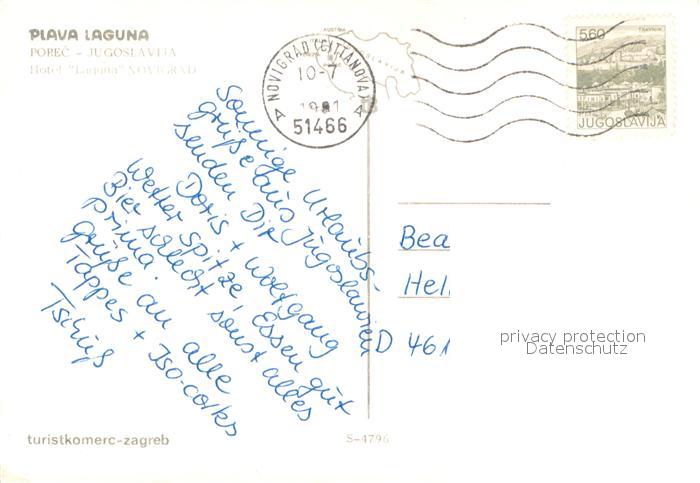 PLAVA LAGUNA
POREČ - JUGOSLAVIJA
Hotel "Laguna" NOVIGRAD
NOVIGRAD (CITTANOVA)
10-7
1981
A A
51466
5,60
TRAVNIK
JUGOSLAVIJA
Sonnige Urlaubs-
grüße aus Jugoslawien
senden Dir
Doris + Wolfgang
Wetter Spitze, Essen gut
Bier schlecht sonst alles
prima.
Grüße an alle
Tappes + Iso-corkes
Tschüß
Bea
Hel
D 461
privacy protection
Datenschutz
turistkomerc-zagreb
S-4796